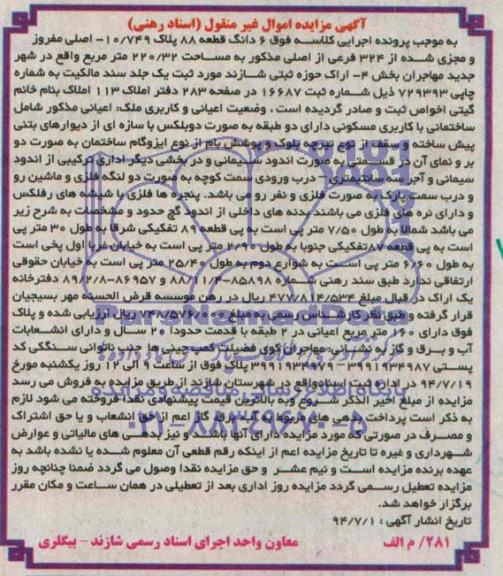 آگهی مزایده اموال غیر منقول (اسناد رهنی)
به موجب پرونده اجرایی کلاسه فوق ۶ دانگ قطعه ۸۸ پلاک ۱۰/۷۴۹- اصلی مفروز
و مجزی شده از ۳۲۴ فرعی از اصلی مذکور به مساحت ۲۲۰/۳۲ متر مربع واقع در شهر
جدید مهاجران بخش ۴- اراک حوزه ثبتی شازند مورد ثبت یک جلد سند مالکیت به شماره
چاپی ۷۲۹۳۹۳ ذیل شماره ثبت ۱۶۶۸۷ در صفحه ۲۸۳ دفتر املاک ۱۱۳ املاک بنام خانم
گیتی اخوص ثبت و صادر گردیده است ، وضعیت اعیانی و کاربری ملک: اعیانی مذکور شامل
ساختمانی با کاربری مسکونی دارای دو طبقه به صورت دوبلکس با سازه ای از دیوارهای بتنی
پیش ساخته و سقف از نوع تیرچه بلوک و پوشش بام از نوع ایزوگام ساختمان به صورت دو
بر و نمای آن در قسمتی به صورت اندود سیمانی و در بخشی دیگر اداری ترکیبی از اندود
سیمانی و آجر سه سانتیمتری - درب ورودی سمت کوچه به صورت دو لنگه فلزی و ماشین رو
و درب سمت پارک به صورت فلزی و نفر رو می باشد. پنجره ها فلزی با شیشه های رفلکس
و دارای نرده های فلزی می باشند بدنه های داخلی از اندود گچ حدود و مشخصات به شرح زیر
می باشد شمالا به طول ۷/۵۰ متر پی است به پی قطعه ۸۹ تفکیکی شرقا به طول ۳۰ متر پی
است به پی قطعه ۸۷ تفکیکی جنوبا به طول ۲/۹۰ متر پی است به خیابان غربا اول پخی است
به طول ۶/۶۰ متر پی است به شوارع دوم به طول ۲۵/۴۰ متر پی است به خیابان حقوقی
ارتفاقی ندارد طبق سند رهنی شماره ۸۵۸۹۸-۸۸/۱۱/۴ و ۸۶۹۵۷-۸۹/۲/۸ دفترخانه
یک اراک در قبال مبلغ ۴۷۷/۸۱۴/۵۳۴ ریال در رهن موسسه قرض الحسنه مهر بسیجیان
قرار گرفته و طبق نظر کارشناس رسمی به مبلغ ۷۴۸/۵۷۶/۰۰۰ ریال ارزیابی شده و پلاک
فوق دارای ۱۶۰ متر مربع اعیانی در ۲ طبقه با قدمت حدودا ۲۰ سال و دارای انشعابات
آب و برق و گاز به نشانی: مهاجران کوی فضیلت کمپ چینی ها جنب نانوایی سنگکی کد
پستی ۳۹۹۱۹۳۴۹۸۷ - ۳۹۹۱۹۳۴۹۷۹ پلاک فوق از ساعت ۹ الی ۱۲ روز یکشنبه مورخ
۹۴/۷/۱۹ در اداره ثبت اسناد واقع در شهرستان شازند از طریق مزایده به فروش می رسد
مزایده از مبلغ اخیر الذکر شروع وبه بالاترین قیمت پیشنهادی نقدا فروخته می شود لازم
به ذکر است پرداخت بدهی های مربوط به آب، برق، گاز اعم از حق انشعاب و یا حق اشتراک
و مصرف در صورتی که مورد مزایده دارای آنها باشد و نیز بدهی های مالیاتی و عوارض
شهرداری و غیره تا تاریخ مزایده اعم از اینکه رقم قطعی آن معلوم شده یا نشده باشد به
عهده برنده مزایده است و نیم عشر و حق مزایده نقدا وصول می گردد ضمنا چنانچه روز
مزایده تعطیل رسمی گردد مزایده روز اداری بعد از تعطیلی در همان ساعت و مکان مقرر
برگزار خواهد شد.
تاریخ انتشار آگهی : ۹۴/۷/۱
۲۸۱/ م الف
معاون واحد اجرای اسناد رسمی شازند - بیگلری
۰۲۱-۸۸۳۴۹۶۷۰-۵